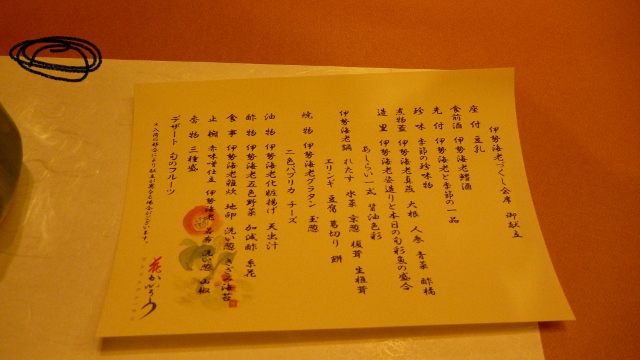 伊勢海老づくし会席 御献立
座付 豆乳
食前酒 伊勢海老鰭酒
先付 伊勢海老と季節の一品
珍味 季節の珍味物
煮物蓋 伊勢海老真蒸 大根 人参 青菜 酢橘
造里 伊勢海老姿造りと本日の旬彩魚の盛合
あしらい一式 醤油色彩
伊勢海老鍋 れたす 水菜 京葱 椎茸 生椎茸
エリンギ 豆腐 葛切り 餅
焼物 伊勢海老グラタン 玉葱
二色パプリカ チーズ
油物 伊勢海老化粧揚げ 天出汁
酢物 伊勢海老五色野菜 加減酢 糸花
食事 伊勢海老雑炊 地卵 洗い葱 きざみ海苔
止椀 赤味噌仕立 伊勢海老 若布 洗い葱 山椒
香物 三種盛
デザート 旬のフルーツ
※入荷の都合により献立が異なる場合がございます。